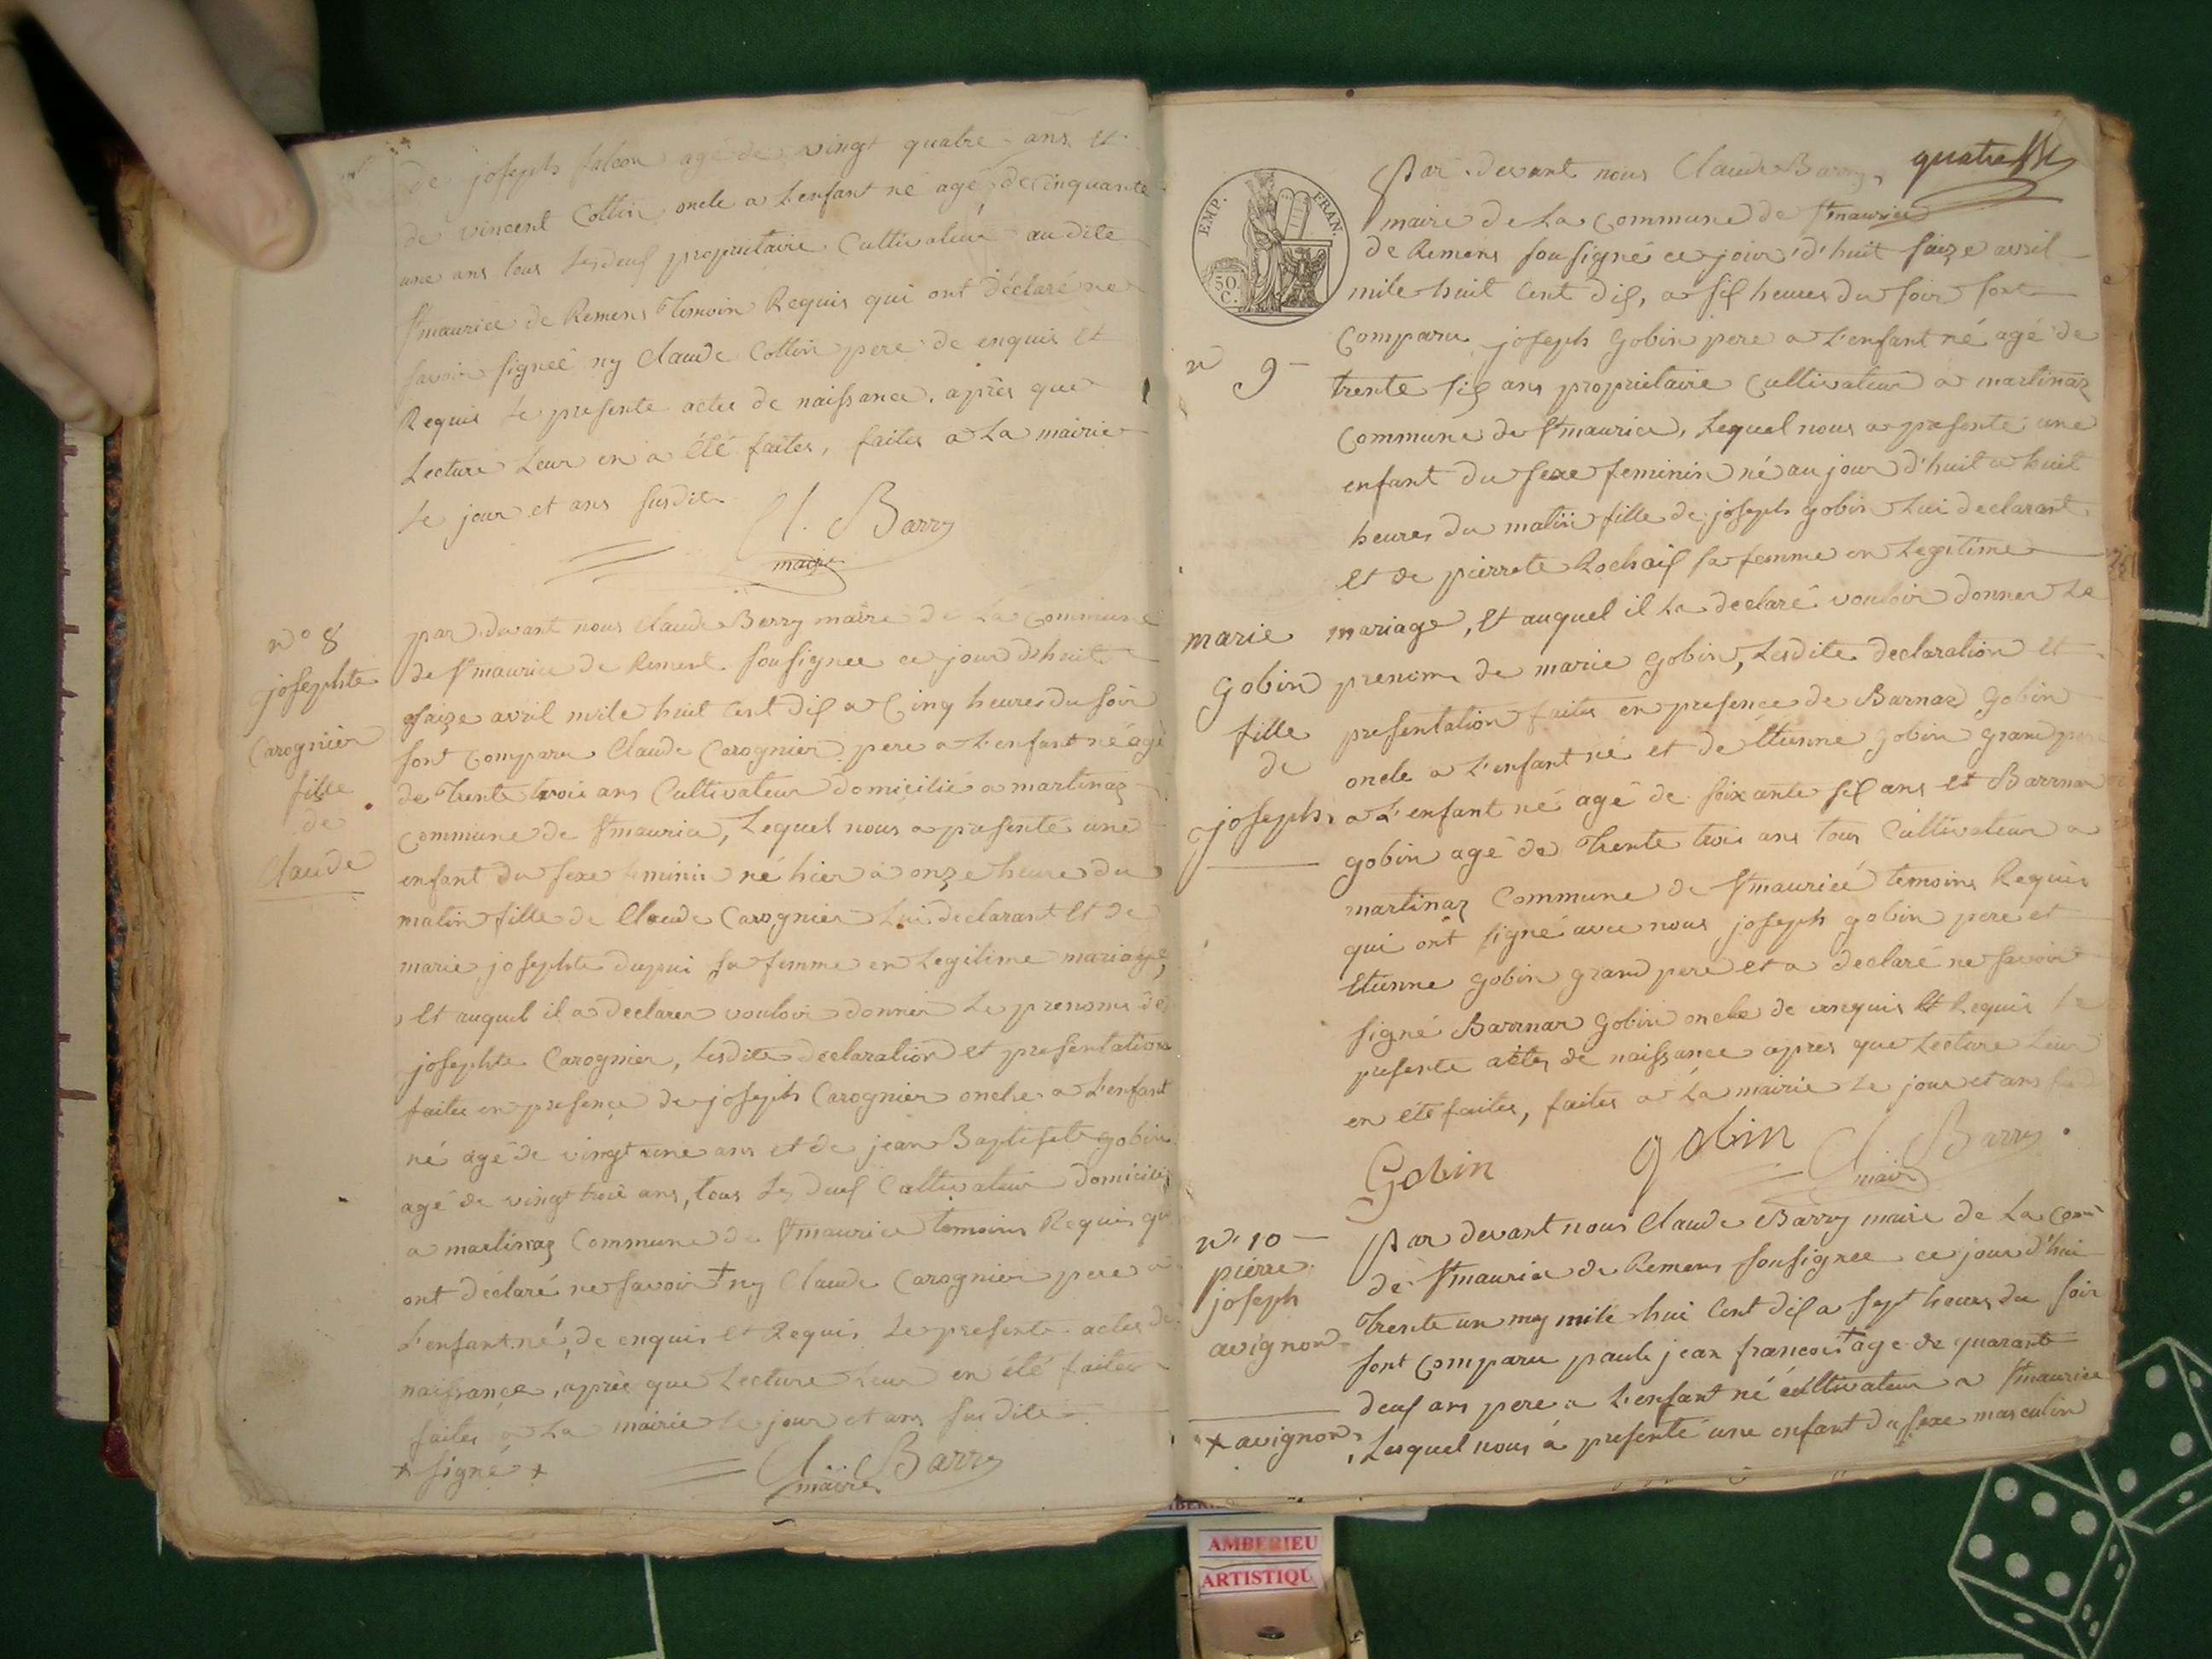 de joseph falcon agé de vingt quatre ans et
de vincent Cottin oncle a L'enfant né agé de Cinquante
une ans tous Les deux proprietaire Cultivateur audite
St maurice de Remens Temoin Requis qui ont déclaré ne
savoir signeé ny Claude Cottin pere de enquis et
Requis Le presente actes de naissance, après que
Lecture Leur en a été faites, faites a La mairie
Le jour et ans susdite
Cl. Barry
maire
n° 8
josephte
Carognier
fille
de
Claude
par devant nous Claude Berry maire de La Commune
de St maurice de Remens sousignee ce jour d'huit
saize avril mile huit Cent dix a Cinq heures du soir
sont Comparu Claude Carognier pere a L'enfant né agé
de Trente trois ans Cultivateur domicilié a martinaz
Commune de St maurice, Lequel nous a presenté une
enfant du sexe feminin né hier à onze heure du
matin fille de Claude Carognier Lui declarant et de
marie josephte dupui sa femme en Legitime mariage,
et auquel il a declarer vouloir donner Le prenoms de
josephte Carognier, Lesdite declaration et presentation
faites en presence de joseph Carognier oncle a L'enfant
né agé de vingt une ans et de jean Baptiste gobin
agé de vingt trois ans, tous Les deux Cultivateur domicilié
a martinaz Commune de St maurice temoins Requis qui
ont déclaré ne savoir + ny Claude Carognier pere a
L'enfant né, de enquis et Requis Le presente actes de
naissance, après que Lecture Leur en été faites
faites a La mairie Le jour et ans susdite
+ signé +
Cl. Barry
maire
quatre
EMP. FRAN.
50. C.
Par devant nous Claude Barry
maire de La Commune de St maurice
de Remens sousigné ce jour d'huit saize avril
mile huit Cent dix, a six heures du soir sont
Comparu joseph gobin pere a L'enfant né agé de
n 9
trente six ans proprietaire Cultivateur a martinaz
Commune de St maurice, Lequel nous a presenté une
enfant du sexe feminin né au jour d'huit a huit
heures du matin fille de joseph gobin Lui declarant
et de pierrete Rochaix sa femme en Legitime
mariage, et auquel il La declaré vouloir donner Le
prenom de marie gobin, Lesdite declaration et
presentation faites en presence de Barnar gobin
oncle a L'enfant né et de Etienne gobin grand pere
a L'enfant né agé de soixante six ans et Barnar
gobin agé de Trente trois ans tous Cultivateur a
martinaz Commune de St maurice temoins Requis
qui ont signé avec nous joseph gobin pere et
Etienne gobin grand pere et a declaré ne savoir
signé Barnar gobin oncle de enquis et Requis Le
presente actes de naissance apres que Lecture Leur
en été faites, faites a La mairie Le jour et ans
marie
gobin
fille
de
joseph
Gobin
gobin
Cl. Barry
maire
n° 10
pierre
joseph
avignon
Par devant nous Claude Barry maire de La Com
de St maurice de Remens sousignee ce jour d'hui
Trente un may mile hui Cent dix a sept heures du soir
sont Comparu paule jean francois + age de quarant
deux ans pere a L'enfant né cultivateur a St maurice
Lesquel nous à presenté une enfant du sexe masculin
+ avignon
AMBERIEU
ARTISTIQU